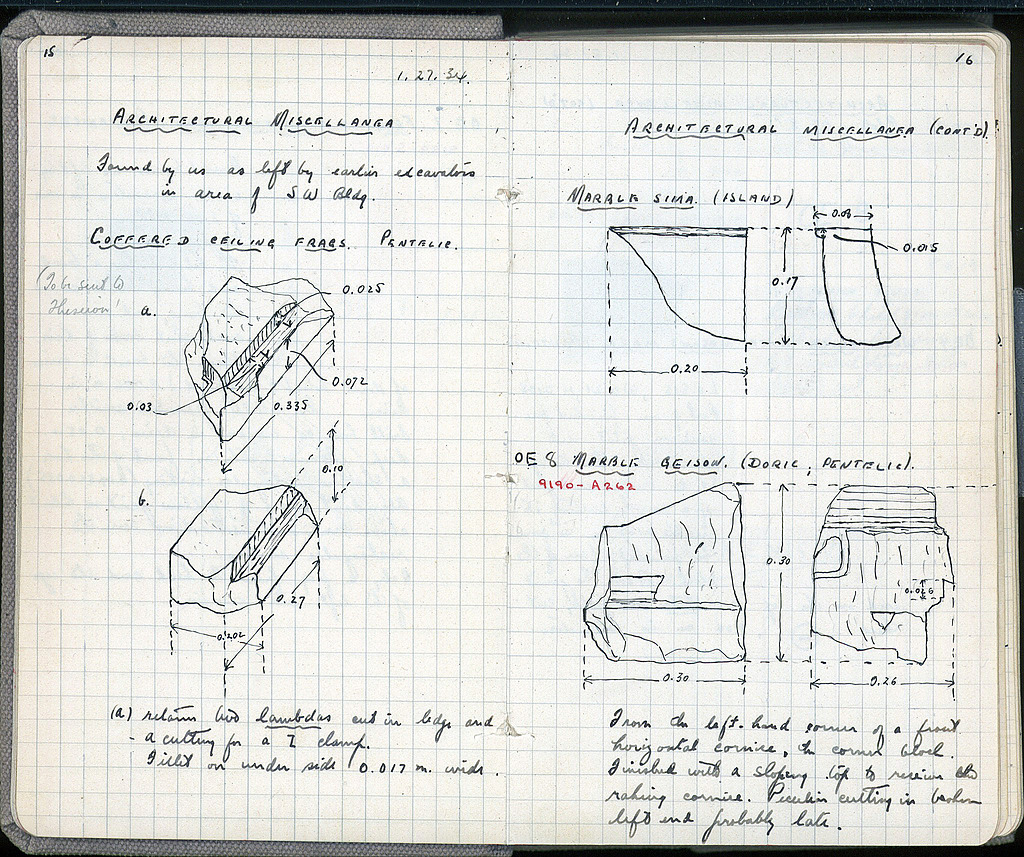 15
1.27.34.
ARCHITECTURAL MISCELLANEA
Found by us as left by earlier excavators
in area of SW Bldg.
COFFERED CEILING FRAGS. PENTELIC.
(To be sent to
Theseion!
a.
0.025
0.072
0.03
0.335
0.10
b.
0.27
0.202
(a) retains two lambdas cut in ledge and
- a cutting for a Z clamp.
Fillet on under side 0.017 m. wide.
16
ARCHITECTURAL MISCELLANEA (CONT'D)
MARBLE SIMA. (ISLAND)
0.08
0.015
0.17
0.20
OE 8 MARBLE GEISON. (DORIC, PENTELIC).
9190-A262
0.30
0.026
0.30
0.26
From the left-hand corner of a front
horizontal cornice, the corner block.
Finished with a sloping top to receive the
raking cornice. Peculiar cutting in broken
left end probably late.